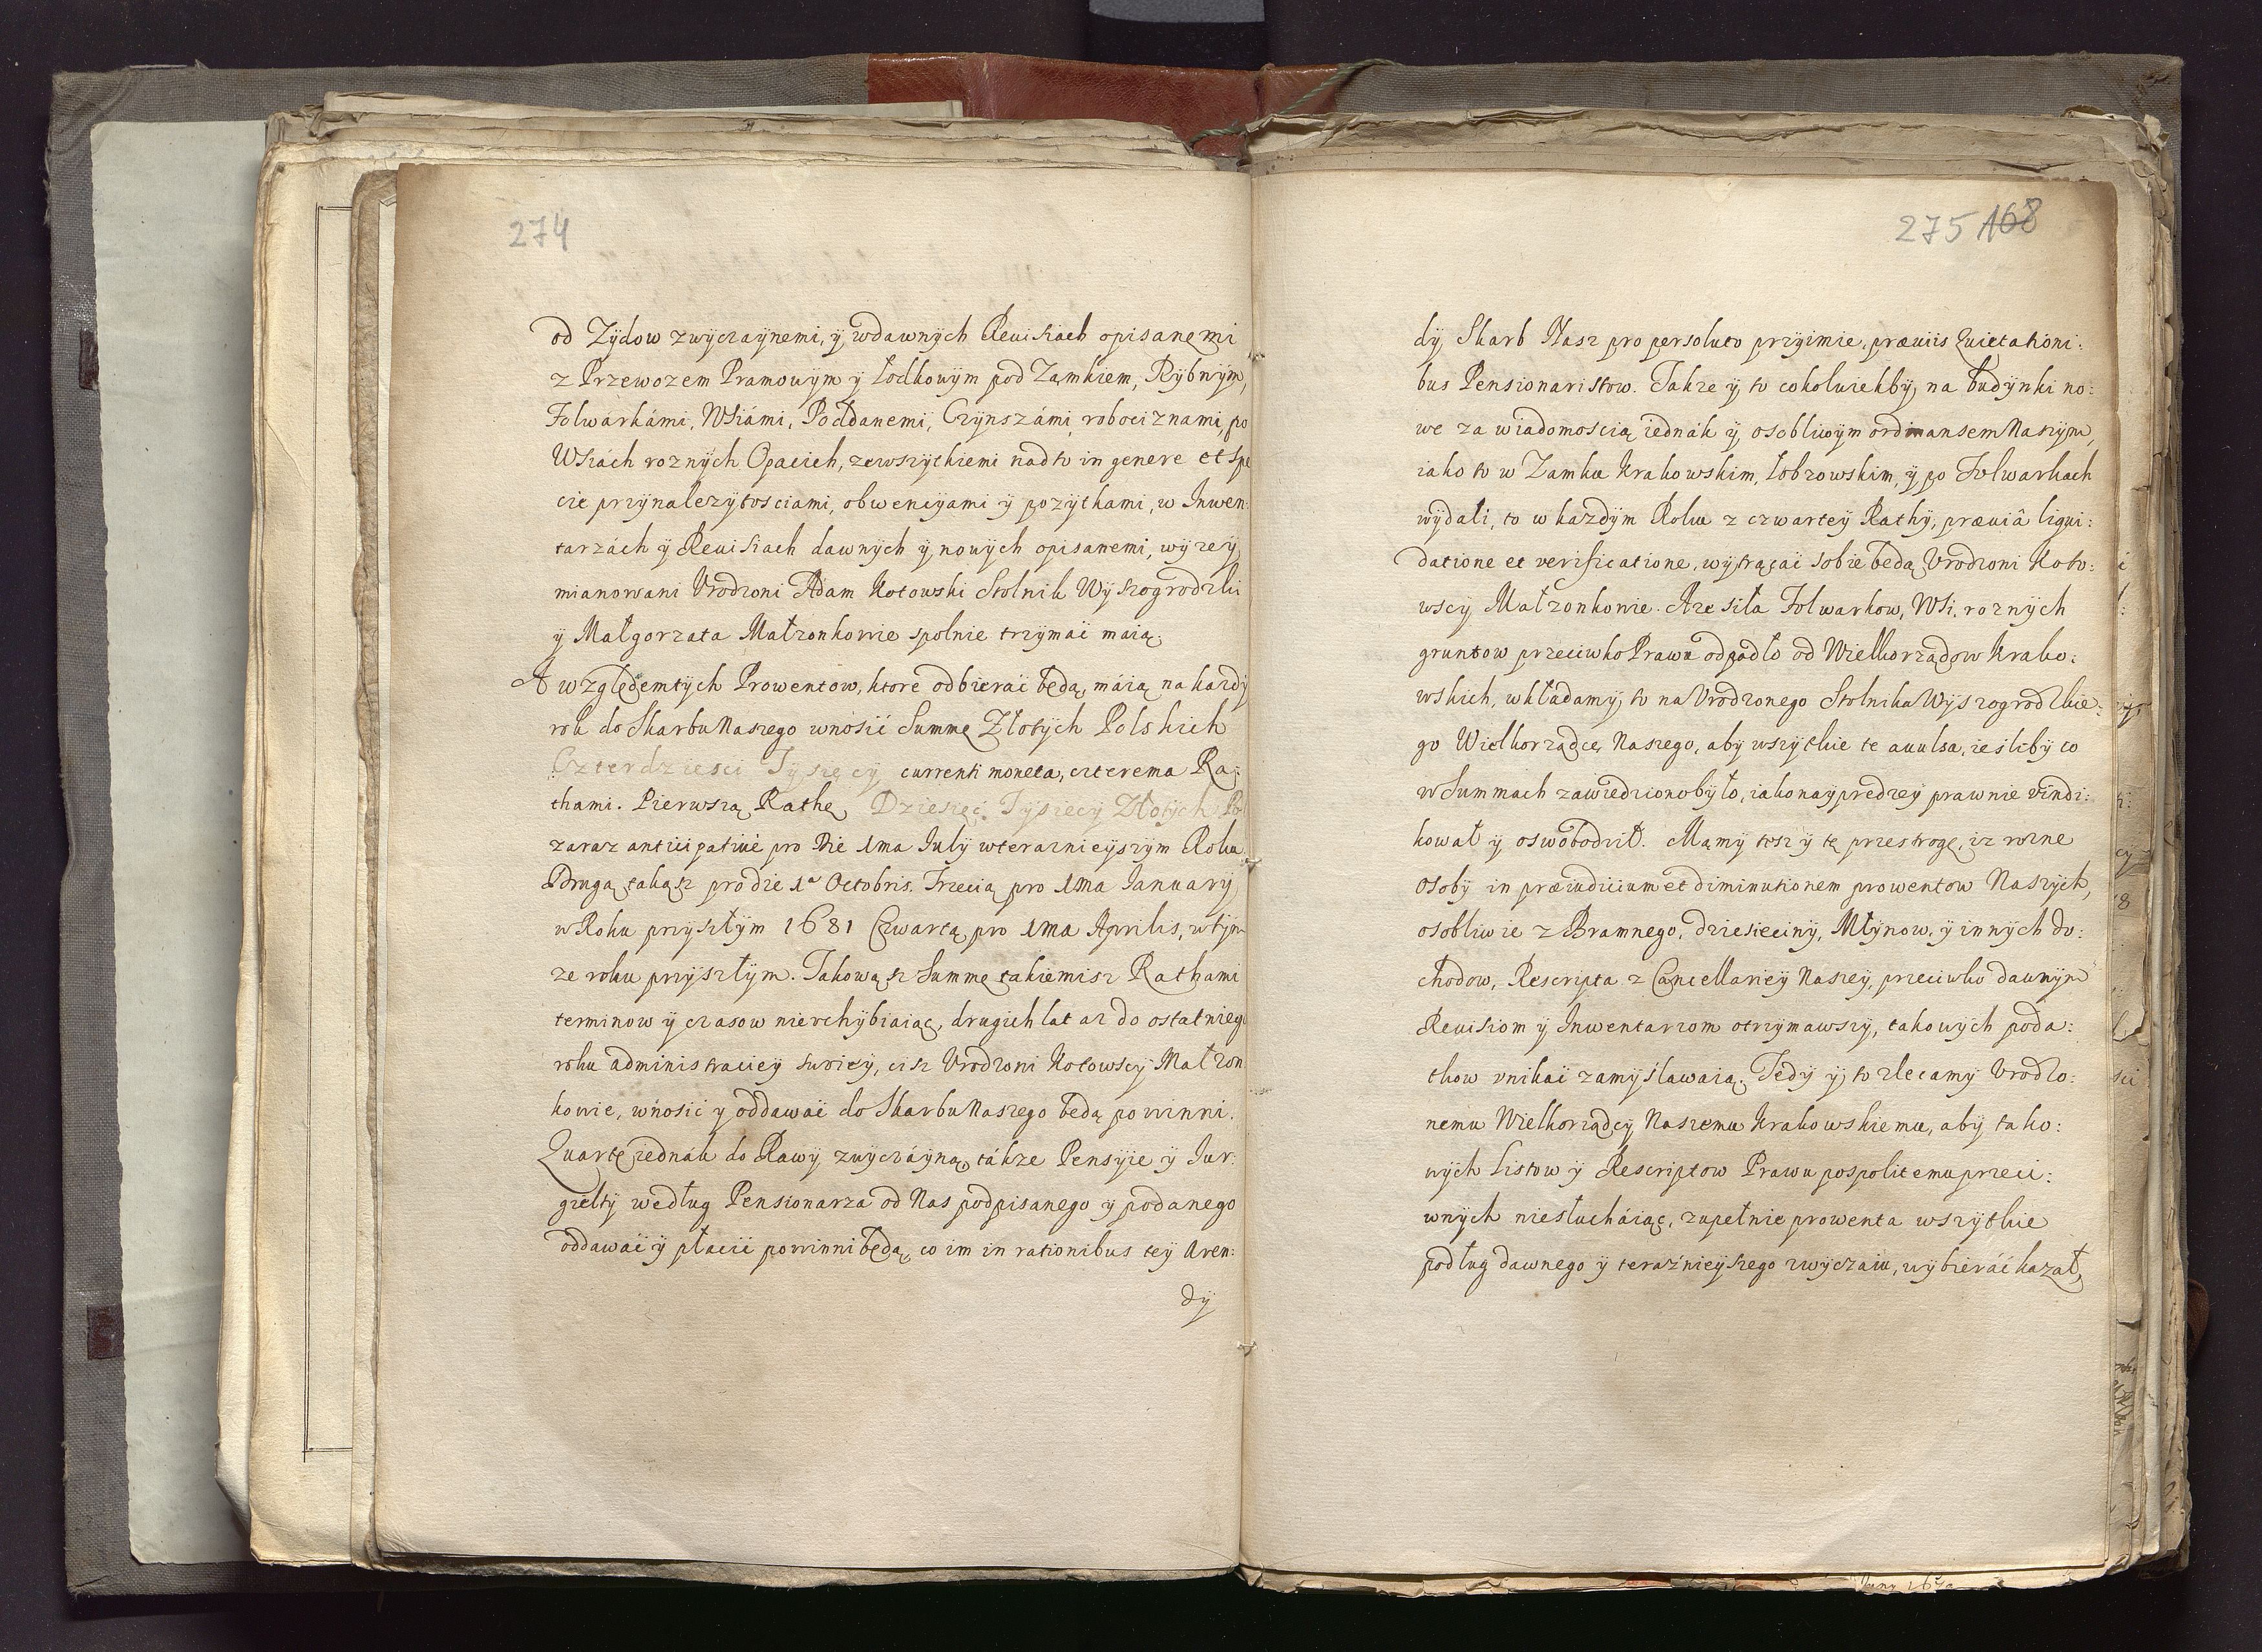 274
od Zÿdow zwyczaÿnemi, ÿ wdawnÿch Reuisiach opisanemi
z Przewozem Pramowÿm ÿ Łodkowÿm pod Zamkiem, Rÿbnÿm,
Folwárkámi, Wsiámi, Poddanemi, Czÿnszámi, robociznami, po
Wsiách roznÿch Opacich, zewszÿtkiemi nadto in genere et spe
cie przÿnależÿtosciami, obwencÿami ÿ pozÿtkami, w Inwen:
tarzách ÿ Reuisiach dawnÿch ÿ nowÿch opisanemi, wÿzeÿ
mianowani Vrodzoni Adam Kotowski Stolnik Wyszogrodzki
ÿ Małgorzata Małzonkowie spolnie trzÿmać maią;
A względemtÿch Prowentow, ktore odbierać będą, máią na kazdÿ
rok do Skarbu Naszego wnosić Summę Złotÿch Polskich
Czterdziesci Tÿsięcÿ currenti moneta, czterema Ra:
thami. Pierwszą Rathę Dziesięć Tÿsięcÿ Złotÿch Pol
zaraz anticipatiue pro Die 1ma Julÿ wterazniejszÿm Roku
Drugą takąsz pro die 1a Octobris. Trzecią pro 1ma Januarÿ
w Roku przÿszłÿm 1681 Czwartą pro 1ma Aprilis, w tÿm
ze roku przÿszłÿm. Takowąsz Summę takiemisz Rathami
terminow ÿ czasow nievchÿbiaiąc, drugich lat az do ostatniego
roku administraciey swoieÿ, cisz Vrodzoni Kotowscÿ Małzon
kowie, wnosić ÿ oddawać do Skarbu Naszego będą powinni.
Quartę iednák do Rawÿ zwyczáÿną, tákze Pensÿie ÿ Jur:
gieltÿ według Pensionarza od Nas podpisanego ÿ podanego
oddawać ÿ płacić powinni będą, co im in rationibus teÿ Aren:
dÿ
275 168
dÿ Skarb Nasz pro persoluto przÿimie, præuiis Quietationi:
bus Pensionaristow. Takze ÿ to cokolwiekbÿ na budÿnki no:
we za wiadomoscią iednák ÿ osobliwÿm ordinansem Naszÿm,
iako to w Zamku Krakowskim, Łobzowskim, ÿ po Folwarkach
wÿdali, to w kazdÿm Roku z czwarteÿ Rathÿ, præuiâ liqui:
datione et verificatione, wÿtrącać sobie będą Vrodzoni Koto:
wscÿ Małzonkowie. A ze siła Folwarkow, Wsi, roznÿch
gruntow przeciwko Prawu odpadło od Wielkorządow Krako:
wskich, wkładamÿ to na Vrodzonego Stolnika Wyszogrodzkie:
go Wielkorządcę Naszego, aby wszÿtkie te auulsa, iesliby co
w Summach zawiedziono było, iako naÿprędzeÿ prawnie vindi:
kował ÿ oswobodził. Mamy tesz ÿ tę przestrogę, iz rozne
osobÿ in præiudicium et diminutionem prowentow Naszÿch,
osobliwie z Bramnego, dziesięcinÿ, Młÿnow, ÿ innÿch do:
chodow, Rescripta z Cancellarieÿ Naszeÿ, przeciwko dawnÿm
Reuisiom ÿ Inwentarzom otrzÿmawszÿ, takowÿch poda:
tkow vnikać zamÿsławaią. Tedÿ ÿ to zlecamÿ Vrodzo:
nemu Wielkorządcÿ Naszemu Krakowskiemu, abÿ tako:
wÿch Listow ÿ Rescriptow Prawu pospolitemu przeci:
wnÿch niesłucháiąc, zupełnie prowenta wszÿtkie
podług dawnego ÿ teraźnieÿszego zwÿczaiu, wÿbieráć kazał,